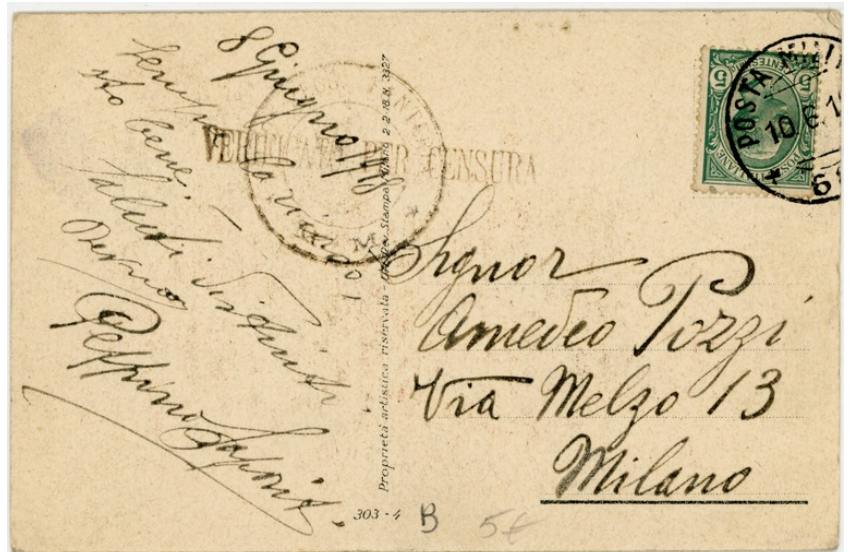 8 Giugno 1918
Sempre
sto bene.
Saluti distinti
Peppino
VERIFICATA PER CENSURA
Proprietà artistica riservata
Stampa
2-2-18.
303 - 4
B
5€
POSTA MILI
10.6.1
5
5
Signor
Amedeo Pozzi
Via Melzo 13
Milano